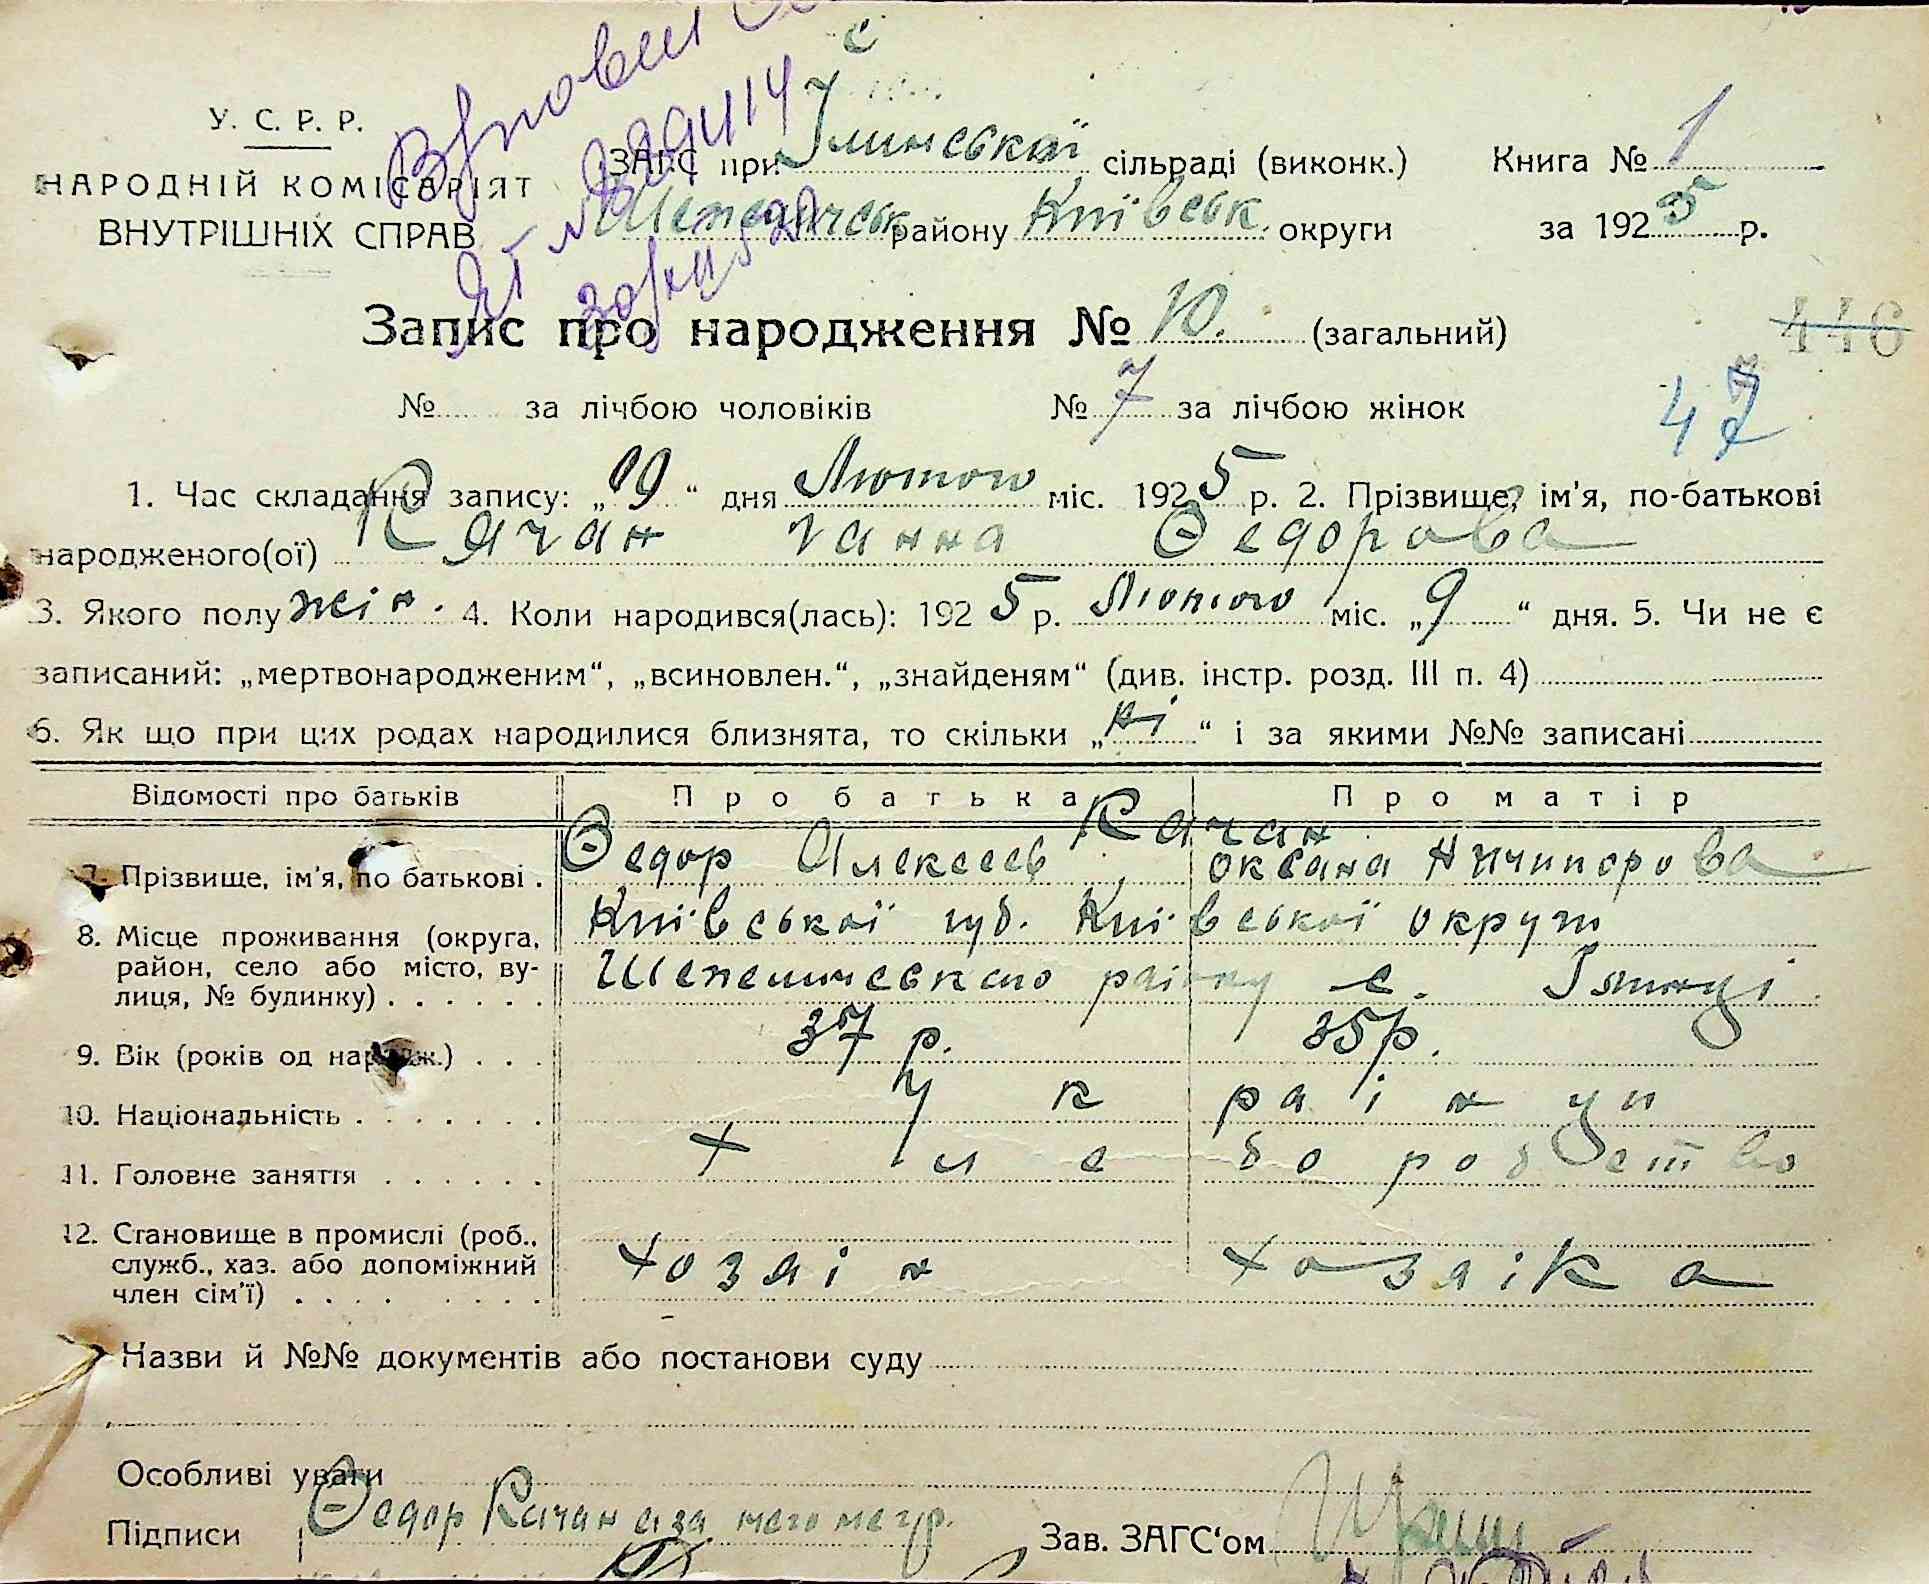 У. С. Р. Р.
НАРОДНІЙ КОМІСАРІЯТ
ВНУТРІШНІХ СПРАВ
ЗАГС при Ілинської сільраді (виконк.)
Шепелическ району Київськ. округи
Книга № 1
за 1925 р.
Запис про народження № 10. (загальний)
446
№ за лічбою чоловіків № 7 за лічбою жінок
47
1. Час складання запису: „19“ дня Лютого міс. 1925 р. 2. Прізвище, ім'я, по-батькові
народженого(ої) Качан Ганна Ѳедорова
3. Якого полу жін. 4. Коли народився(лась): 1925 р. Лютого міс. „9“ дня. 5. Чи не є
записаний: „мертвонародженим“, „всиновлен.“, „знайденям“ (див. інстр. розд. III п. 4)
6. Як що при цих родах народилися близнята, то скільки „ні“ і за якими №№ записані
Відомості про батьків Про батька Про матір
Качан
7. Прізвище, ім'я, по батькові . Ѳедор Алексеев Оксана Ничипорова
8. Місце проживання (округа, район, село або місто, ву-
лиця, № будинку) . . . . . .
Київської губ. Київської округи
Шепелическаго району с. Ілинці
9. Вік (років од народж.) . . . 37 р. 35 р.
10. Національність . . . . . . . Українци
11. Головне заняття . . . . . . Хлеборобство
12. Становище в промислі (роб.,
служб., хаз. або допоміжний
член сім'ї) . . . . . . . . хозяін хозяіка
Назви й №№ документів або постанови суду
Особливі уваги
Підписи Ѳедор Качан а за него негр.
Зав. ЗАГС'ом